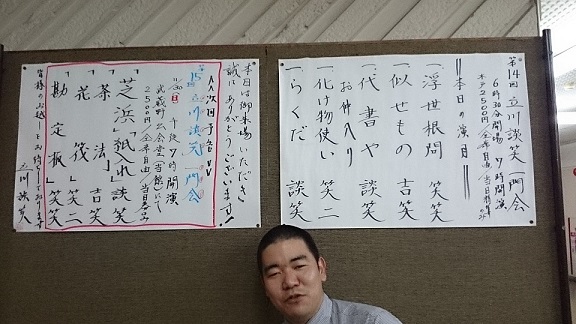 第14回 立川談笑一門会
6時30分開場 7時開演
木戸2500円（全席自由）
＝本日の演目＝
一、浮世根問 笑笑
一、似せもの 吉笑
一、代書や 談笑
お仲入り
一、化け物使い 笑二
一、らくだ 談笑
本日は御来場いただき
誠にありがとうございます!
次回予告
第15回 立川談笑一門会
午後7時開演
武蔵野公会堂（当館）にて
2500円 全席自由
「芝浜」「紙入れ」談笑
「茶法」吉笑
「花筏」笑二
「勘定板」笑笑
皆様のお越しをお待ちしております
立川談笑